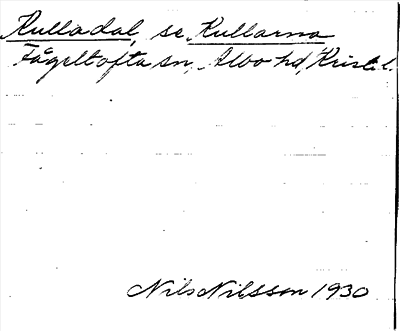 Kulladal, se Kullarna
Fågeltofta sn, Albo hd, Krist. l.
Nils Nilsson 1930